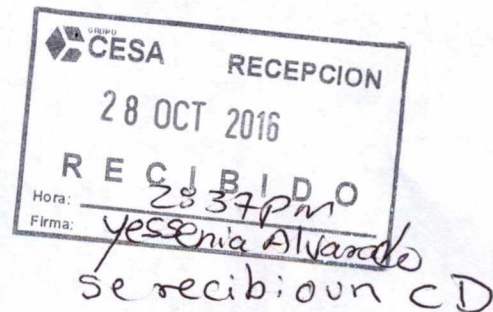 GRUPO
CESA RECEPCION
28 OCT 2016
RECIBIDO
Hora: 2:37pm
Firma: Yessenia Alvarado
se recibio un CD